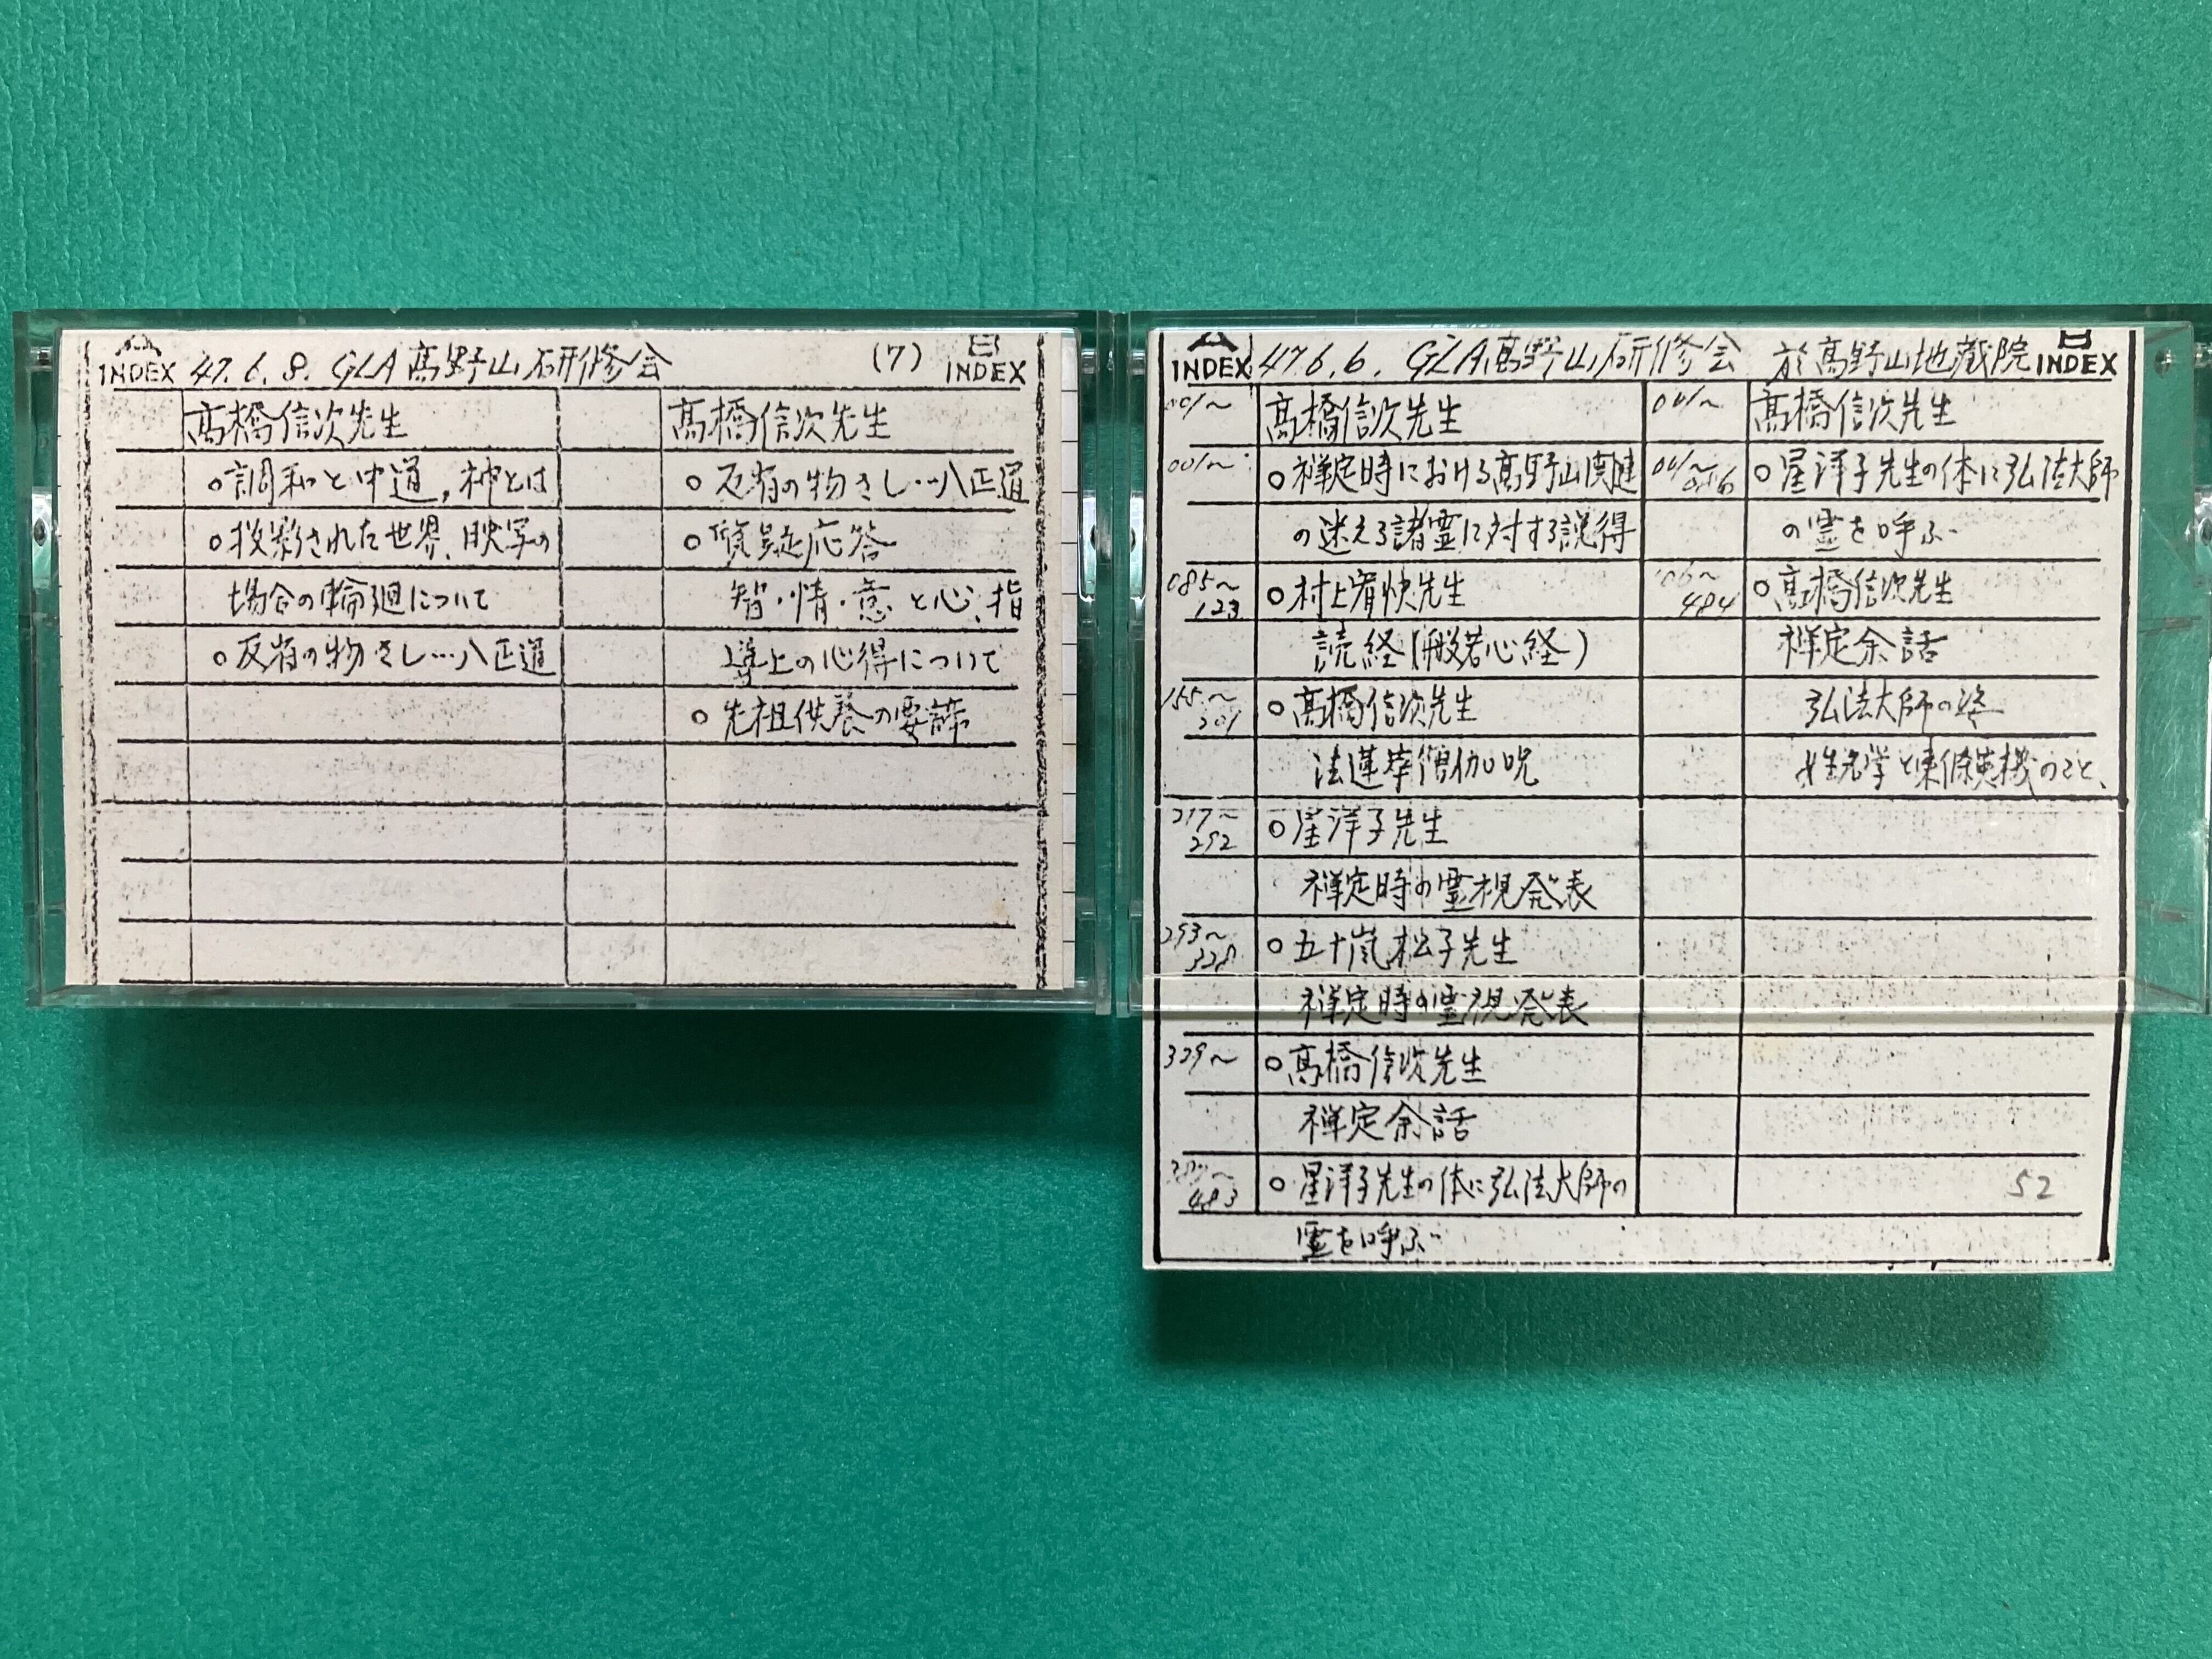 A INDEX 47.6.8. GLA高野山研修会 (7) B INDEX
高橋信次先生
○調和と中道,神とは
○投影された世界、映写の
場合の輪廻について
○反省の物さし…八正道
高橋信次先生
○反省の物さし…八正道
○質疑応答
智・情・意と心、指
導上の心得について
○先祖供養の要諦
A INDEX 47.6.6. GLA高野山研修会 於高野山地蔵院 B INDEX
001〜 高橋信次先生
001〜 ○禅定時における高野山関連
の迷える諸霊に対する説得
085〜123 ○村上宥快先生
読経(般若心経)
155〜201 ○高橋信次先生
法蓮華僧伽呪
217〜292 ○星洋子先生
禅定時の霊視発表
293〜328 ○五十嵐松子先生
禅定時の霊視発表
329〜 ○高橋信次先生
禅定余話
483 ○星洋子先生の体に弘法大師の
霊を呼ぶ
001〜 高橋信次先生
001〜 ○星洋子先生の体に弘法大師
の霊を呼ぶ
484 ○高橋信次先生
禅定余話
弘法大師の姿
姓名学と東條英機のこと、
52